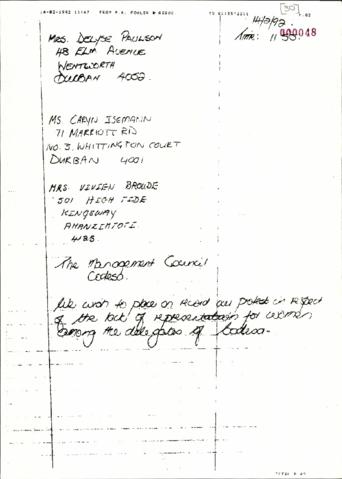 14/2/92
000048
MRS. DELYSE PAULSON
48 ELM AVENUE
WENTWORTH
DURBAN 4052.
MS. CARYN ISEMANN
71 MARRIOTT RD
NO. 3. WHITTINGTON COURT
DURBAN 4001
MRS. VIVIEN BROUDE
501 HIGH TIDE
KINGSWAY
AMANZIMTOTI
4125
The Management Council
Codesa.
We wish to place on record our protest in respect
of the lack of representation for women
among the delegates of Codesa.